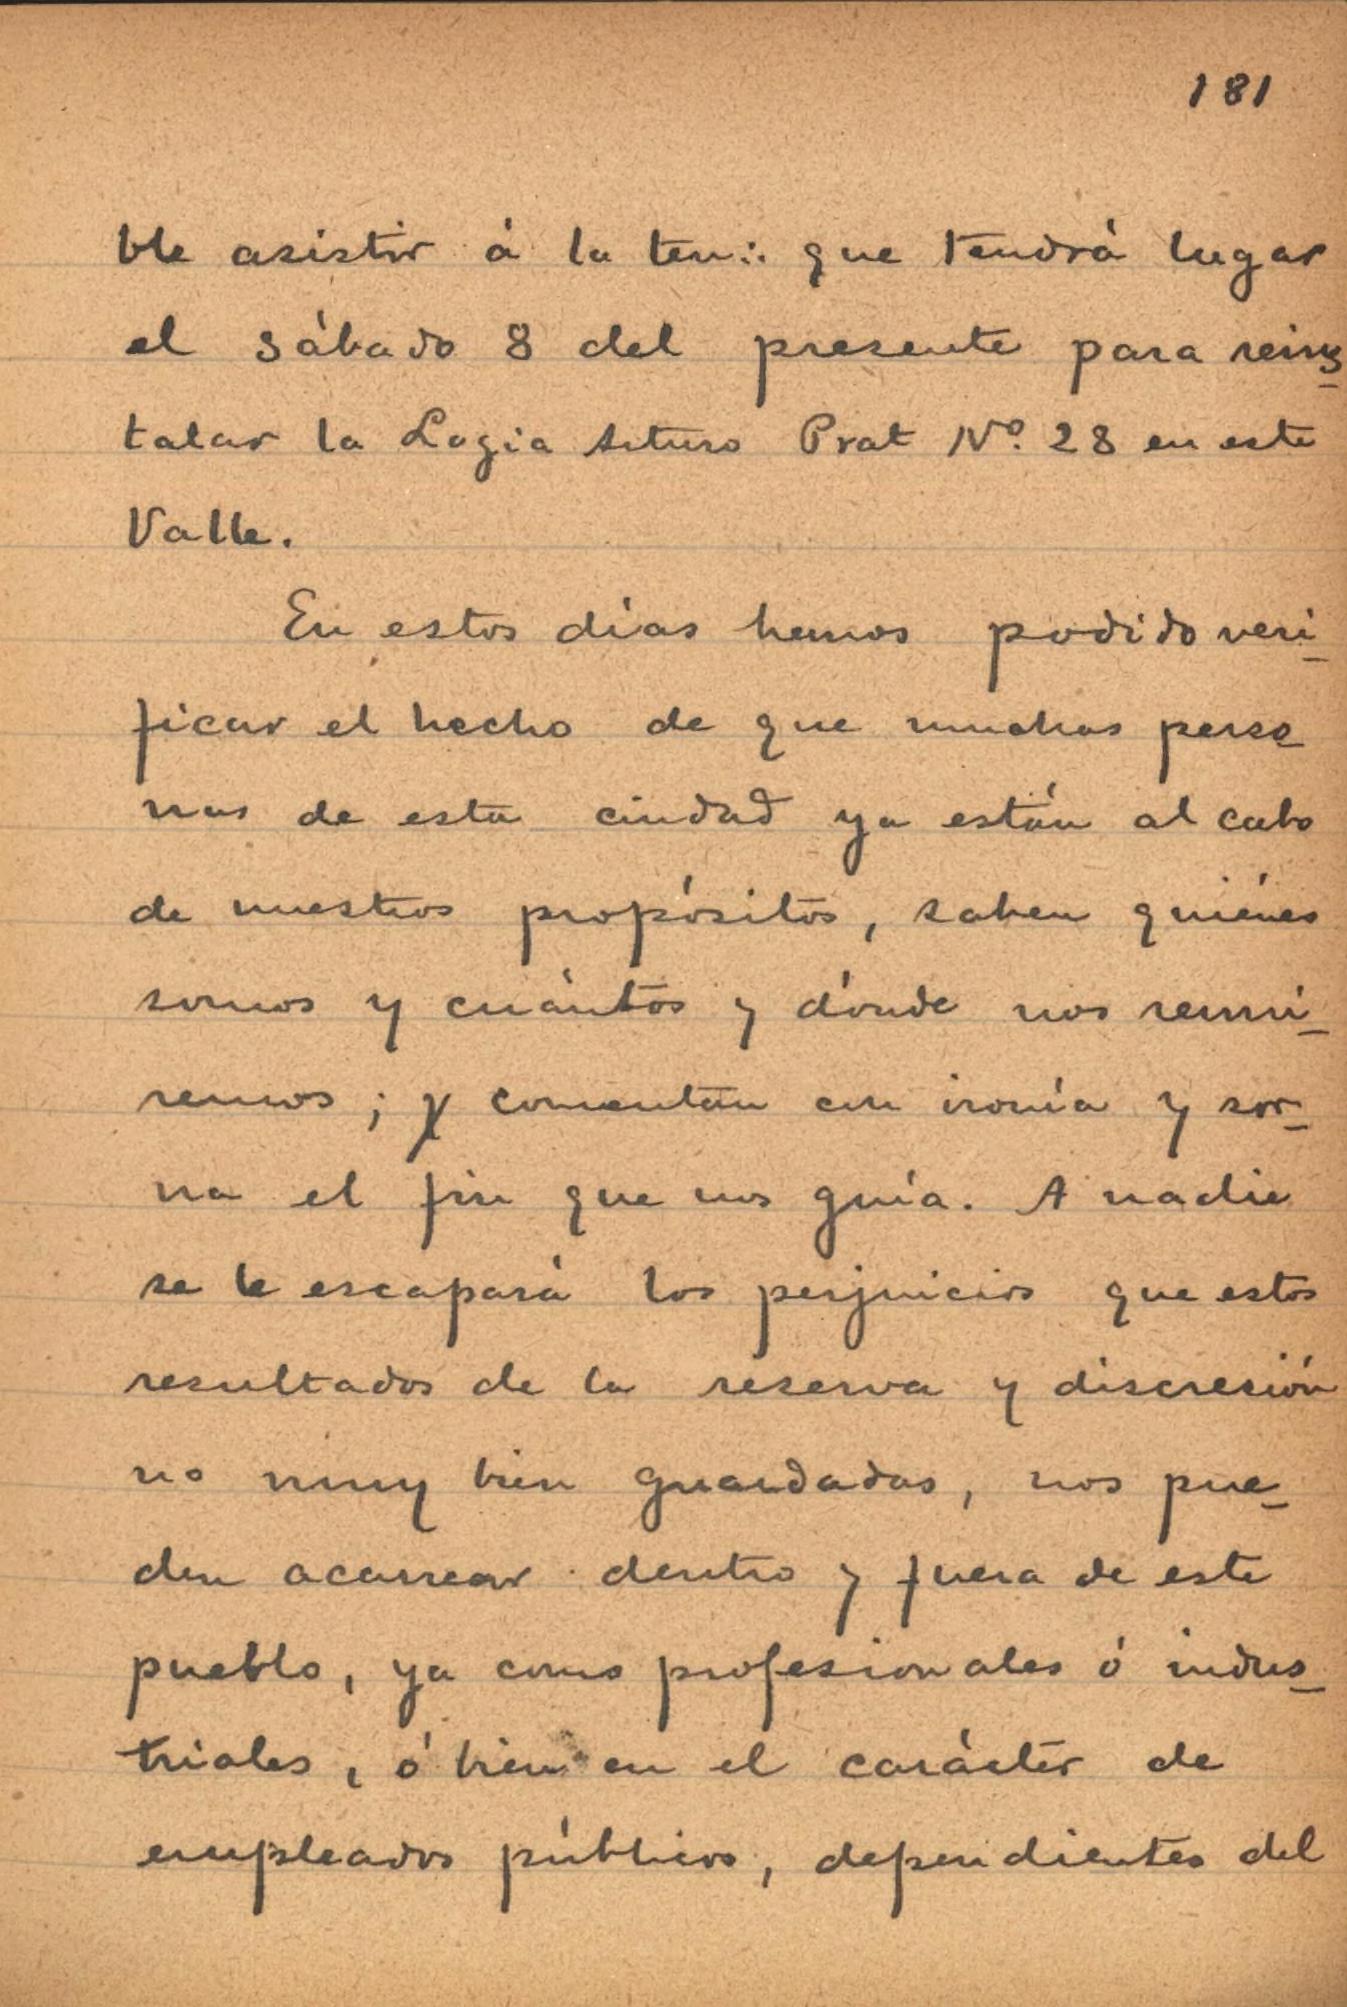 181
ble asistir á la ten∴ que tendrá lugar
el sábado 8 del presente para reins-
talar la Logia Arturo Prat Nº. 28 en este
Valle.
En estos días hemos podido veri-
ficar el hecho de que muchas perso-
nas de esta ciudad ya están al cabo
de nuestros propósitos, saben quiénes
somos y cuántos y dónde nos reuni-
remos; y comentan con ironía y sor-
na el fin que nos guía. A nadie
se le escapará los perjuicios que estos
resultados de la reserva y discresión
no muy bien guardadas, nos pue-
den acarrear dentro y fuera de este
pueblo, ya como profesionales ó indus-
triales, ó bien en el carácter de
empleados públicos, dependientes del